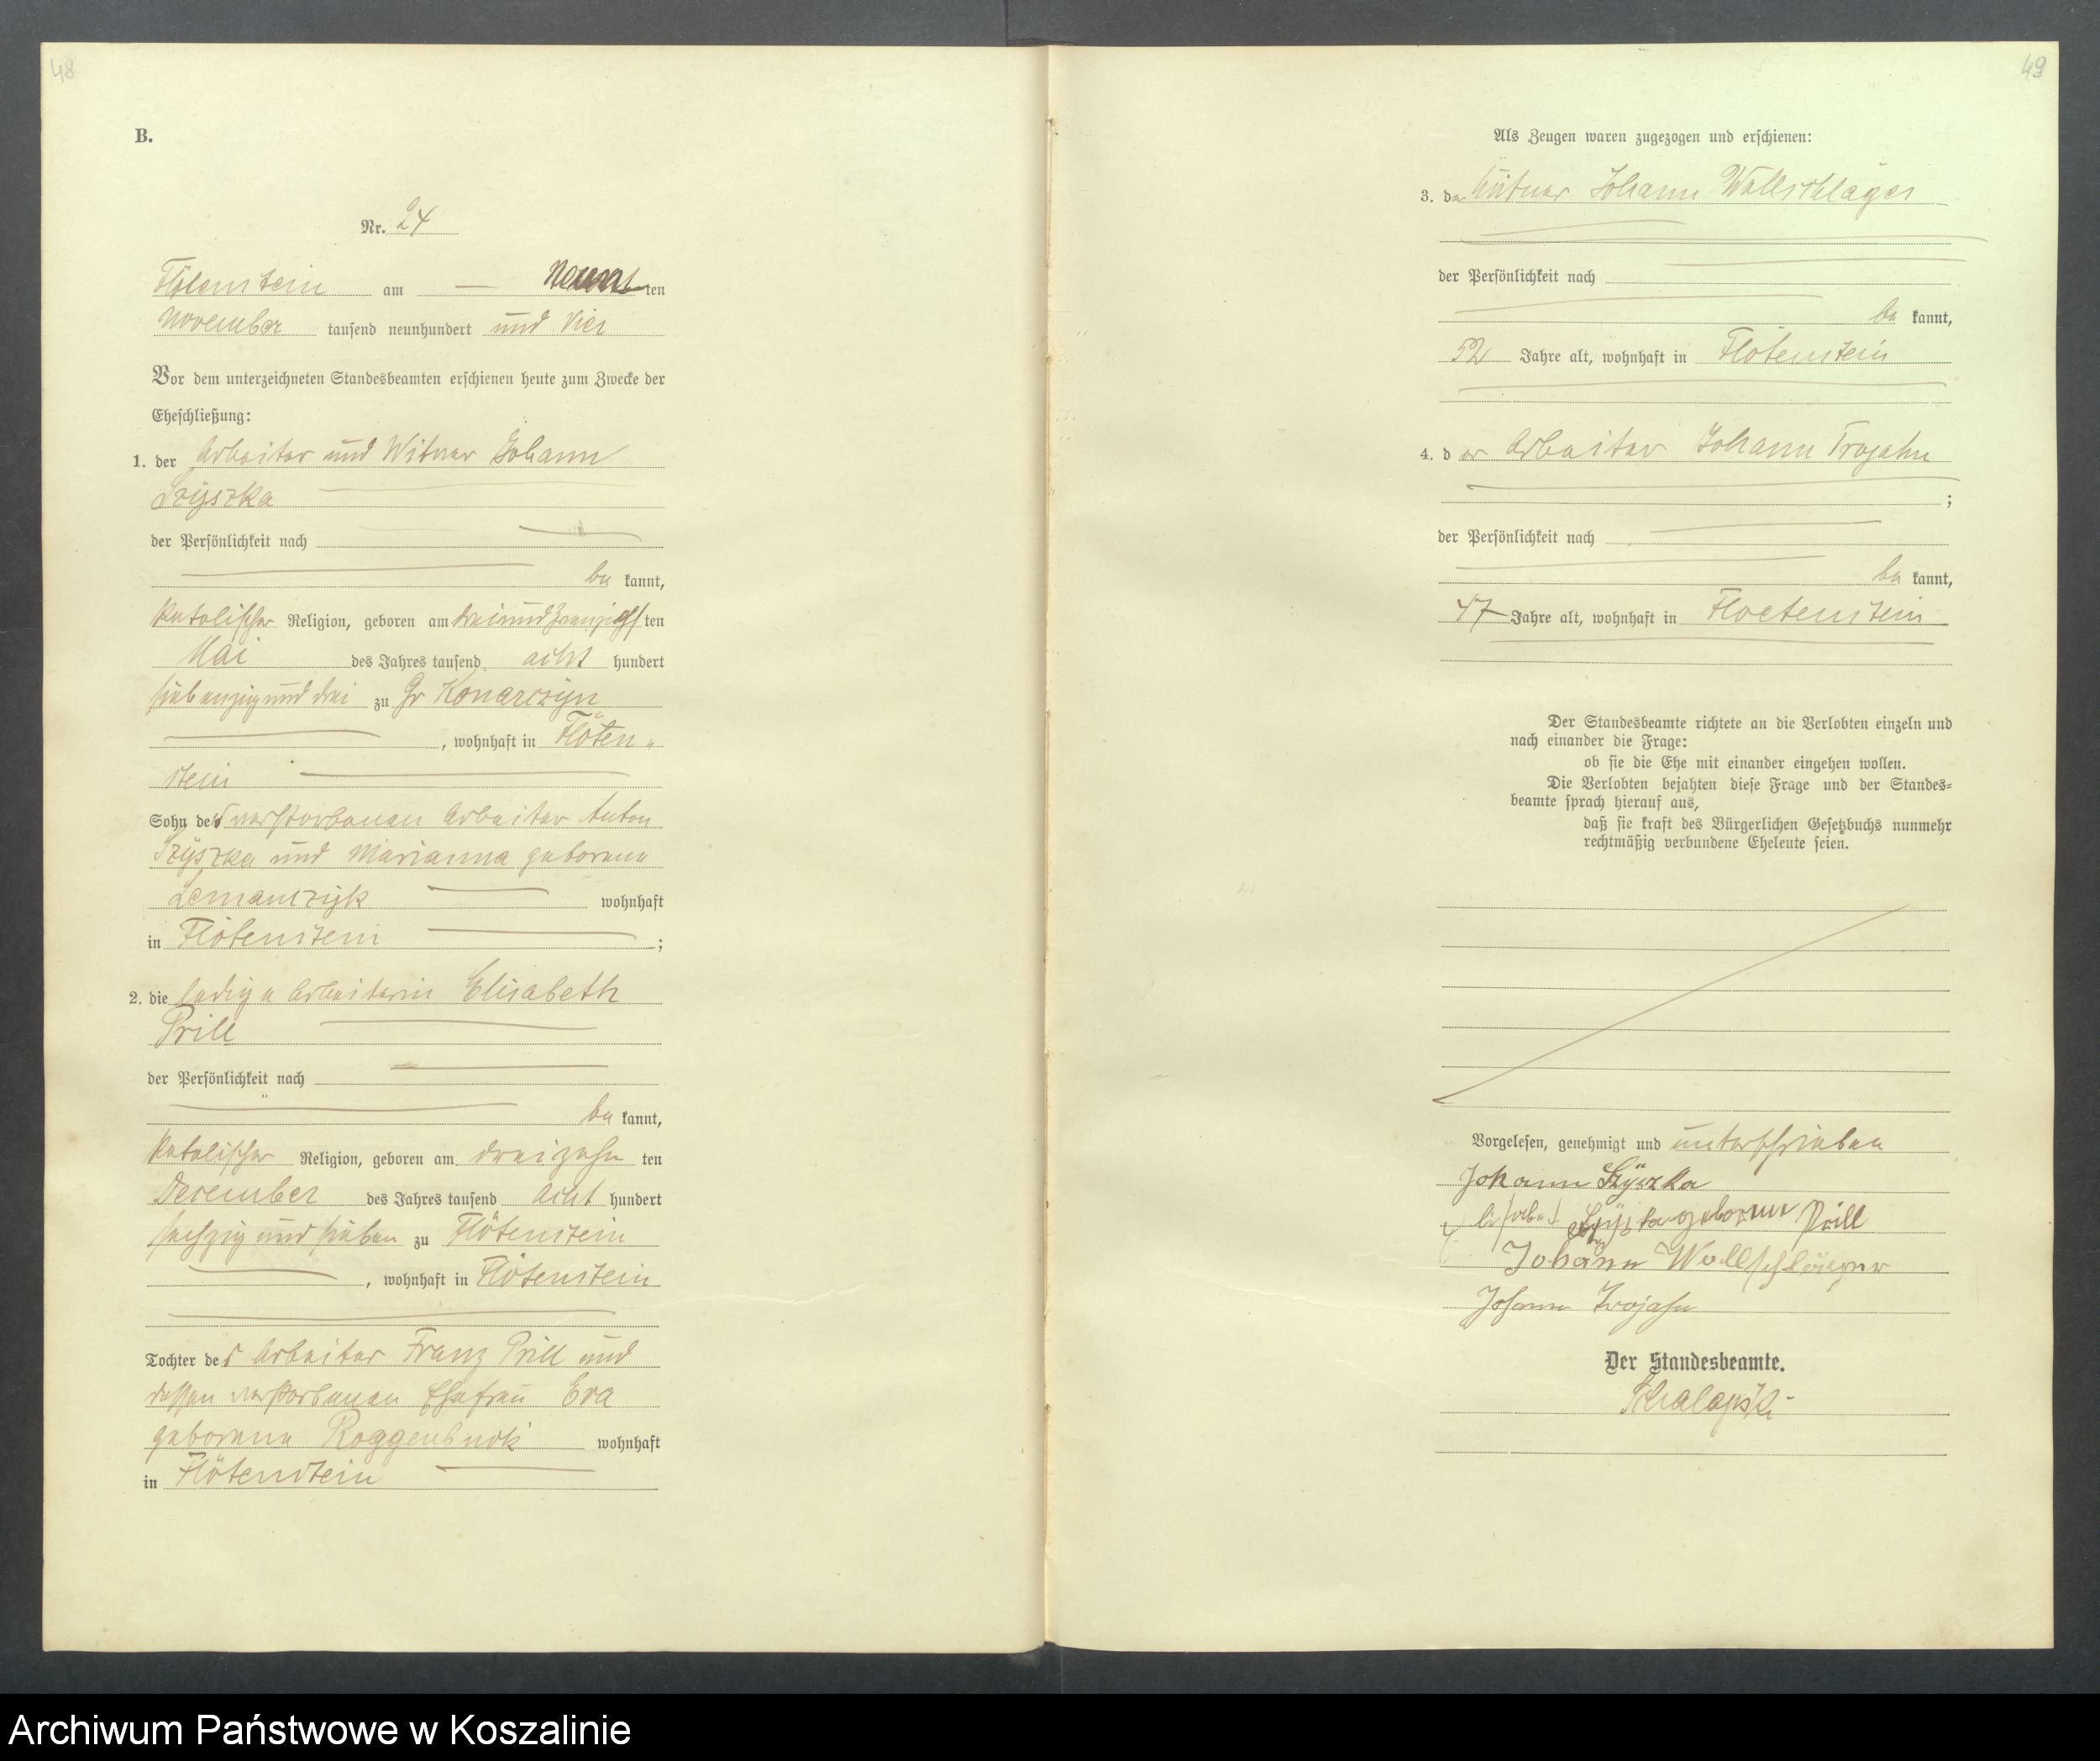 48
B.
Nr. 24
Flötenstein am — ten
November tausend neunhundert und vier
Vor dem unterzeichneten Standesbeamten erschienen heute zum Zwecke der
Eheschließung:
1. der Arbeiter und Witwer Johann
Szyszka
der Persönlichkeit nach
be kannt,
katolischer Religion, geboren am dreiundzwanzigsten
Mai des Jahres tausend acht hundert
siebenzig und drei zu Gr Konarczyn
, wohnhaft in Flöten„
stein
Sohn des verstorbenen Arbeiter Anton
Szyszka und Marianna geborene
Lemanczyk wohnhaft
in Flötenstein ;
2. die ledige Arbeiterin Elisabeth
Prill
der Persönlichkeit nach
be kannt,
katolischer Religion, geboren am dreizehn ten
Dezember des Jahres tausend acht hundert
sechzig und sieben zu Flötenstein
, wohnhaft in Flötenstein
Tochter des Arbeiter Franz Prill und
dessen verstorbenen Ehefrau Eva
geborene Roggenbuck wohnhaft
in Flötenstein
49
Als Zeugen waren zugezogen und erschienen:
3. der Johann Wollschläger
der Persönlichkeit nach
be kannt,
52 Jahre alt, wohnhaft in Flötenstein
4. d er Arbeiter Johann Trojahn
;
der Persönlichkeit nach
be kannt,
47 Jahre alt, wohnhaft in Floetenstein
Der Standesbeamte richtete an die Verlobten einzeln und
nach einander die Frage:
ob sie die Ehe mit einander eingehen wollen.
Die Verlobten bejahten diese Frage und der Standes=
beamte sprach hierauf aus,
daß sie kraft des Bürgerlichen Gesetzbuchs nunmehr
rechtmäßig verbundene Eheleute seien.
Vorgelesen, genehmigt und unterschrieben
Johann Szyszka
geborene Prill
Johann Wollschläger
Johann Trojahn
Der Standesbeamte.
Archiwum Państwowe w Koszalinie